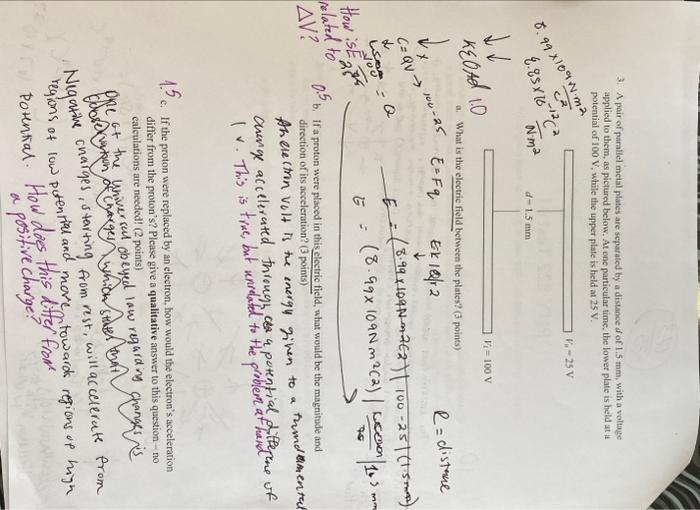 3. A pair of parallel metal plates are separated by a distance d of 1.5 mm, with a voltage
applied to them, as pictured below. At one particular time, the lower plate is held at a
potential of 100 V, while the upper plate is held at 25 V.
8.99x10⁹ N·m²
C²
8.85x10⁻¹² C²
N·m²
Vᵤ = 25 V
d = 1.5 mm
Vₗ = 100 V
1.0
a. What is the electric field between the plates? (3 points)
C=QV → 100-25
E=Fq
R = distance
E = (8.99x109N·m2C2)|100-25|(1.5mm)
= Q
E = (8.99x109Nm2C2)
How is E
related to
ΔV?
0.5
b. If a proton were placed in this electric field, what would be the magnitude and
direction of its acceleration? (3 points)
An electron Volt is the energy given to a fundamental
charge accelerated through a potential difference of
1 V. This is true, but unrelated to the problem at hand
1.5
c. If the proton were replaced by an electron, how would the electron's acceleration
differ from the proton's? Please give a qualitative answer to this question – no
calculations are needed! (2 points)
One of the universal obeyed law regarding charges is
conservation of charge, which states that
Negative charges, starting from rest, will accelerate from
regions of low potential and move towards regions of high
potential. How does this differ from
a positive charge?